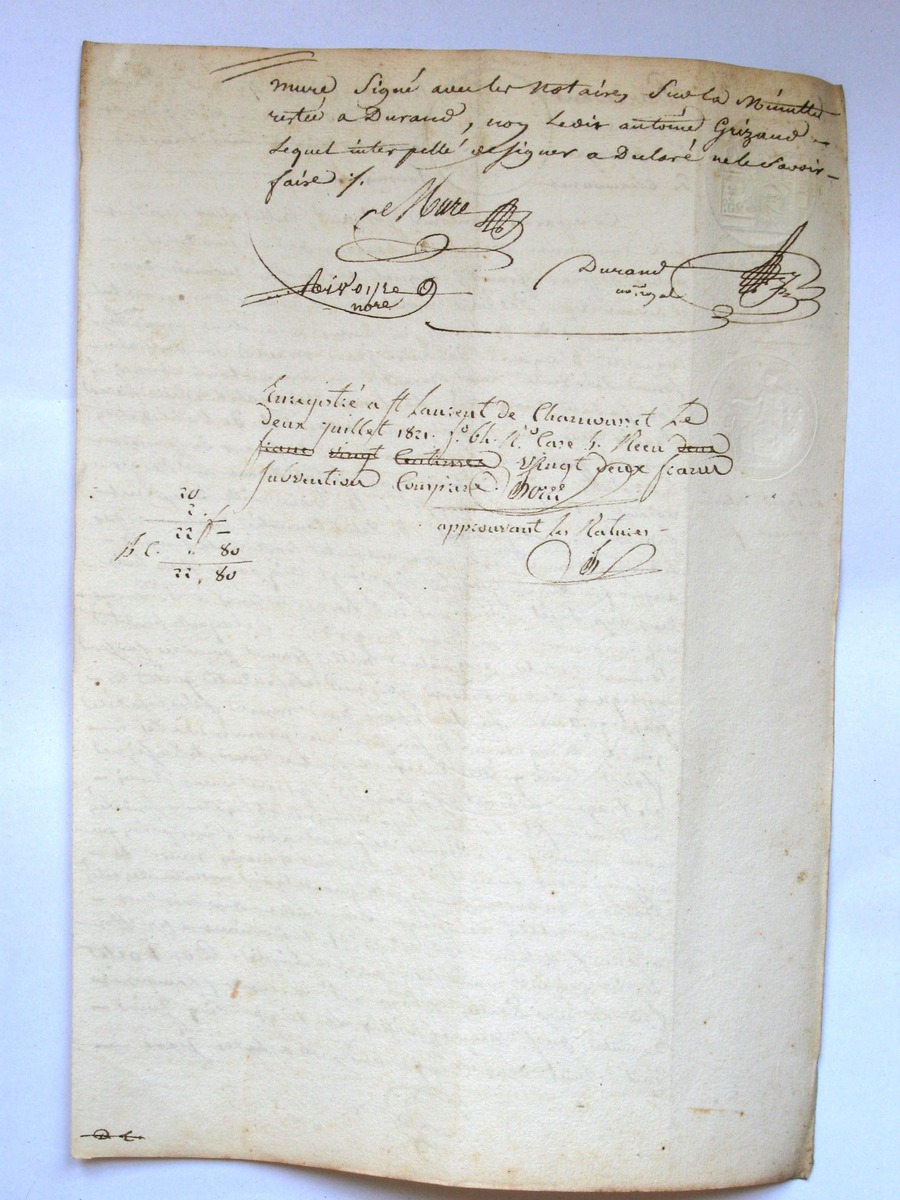 mure Signé avec les Notaires Sur la Minutte
restée a Durand, non Ledit antoine Grizaud
Lequel interpellé de signer a Déclaré ne le Savoir
faire ./.
Mure
Rivoyre
nore
Durand
no.re royal
Enregistré a St Laurent de Chamousset Le
deux juillet 1821. fo. 64. Ro. Case 3. Reçu deux
francs vingt Centimes Vingt deux francs
Subvention Comprise.
approuvant les Ratures
20
2
22 —
80
22, 80